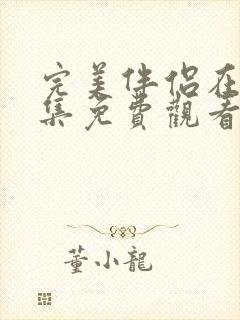 完美伴侶在
集免費觀看
董小龍